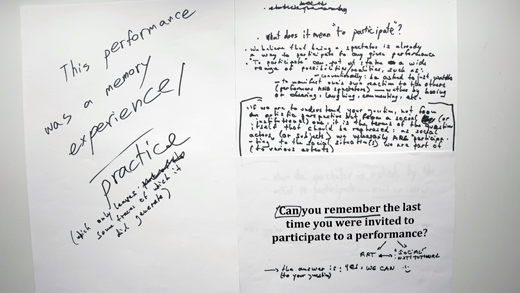 This performance
was a memory
experience/
practice
(which only leaves
some traces of which it
did generate)
What does it mean "to participate"?
- We believe that being a spectator is already
a way to participate to any given performance
- "To participate" can put at stake a wide
range of possibilities/realities, such as:
- conventionally: be asked to
- to manifest one's own reaction to the others
(performers AND spectators) — whether by booing
or cheering, laughing, commenting, etc.
if we are to understand your question, not from
an artistic perspective but from a social (or
institutional) one, it is the terms of the question
itself that should be rephrased: as social
actors, (or subjects) we necessarily ARE participa-
ting to the social situation(s) we are part of
(its various extents)
Can you remember the last
time you were invited to
participate to a performance?
ART "SOCIAL"
INSTITUTIONAL
→ the answer is: YES, WE CAN
(to your question)